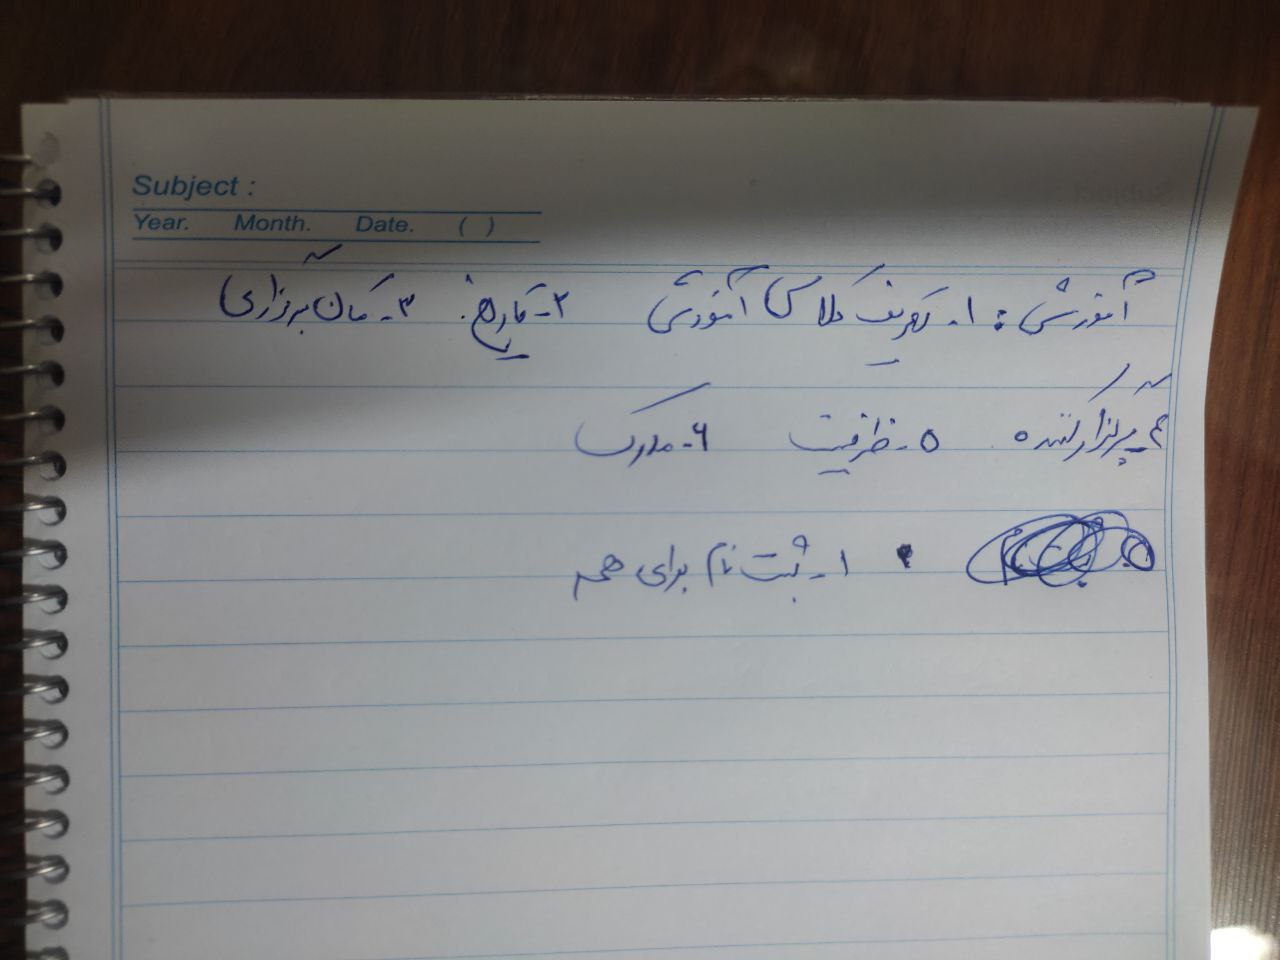 Subject :
Year. Month. Date. ( )
آموزشی : ۱- تعریف کلاس آموزشی ۲- تاریخ ۳- مکان برگزاری
۴- برگزار کننده ۵- ظرفیت ۶- مدرس
۱- ثبت نام برای همه